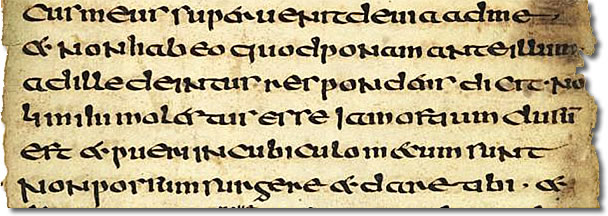 cusmeus superuenit deuia adme
& non habeo quod ponam ante illum
adille deintus respondens dicit· no
li mihi molestus esse iam ostium clusū
est & pueri in cubiculo mecum sunt
non possum surgere & dare tibi · &